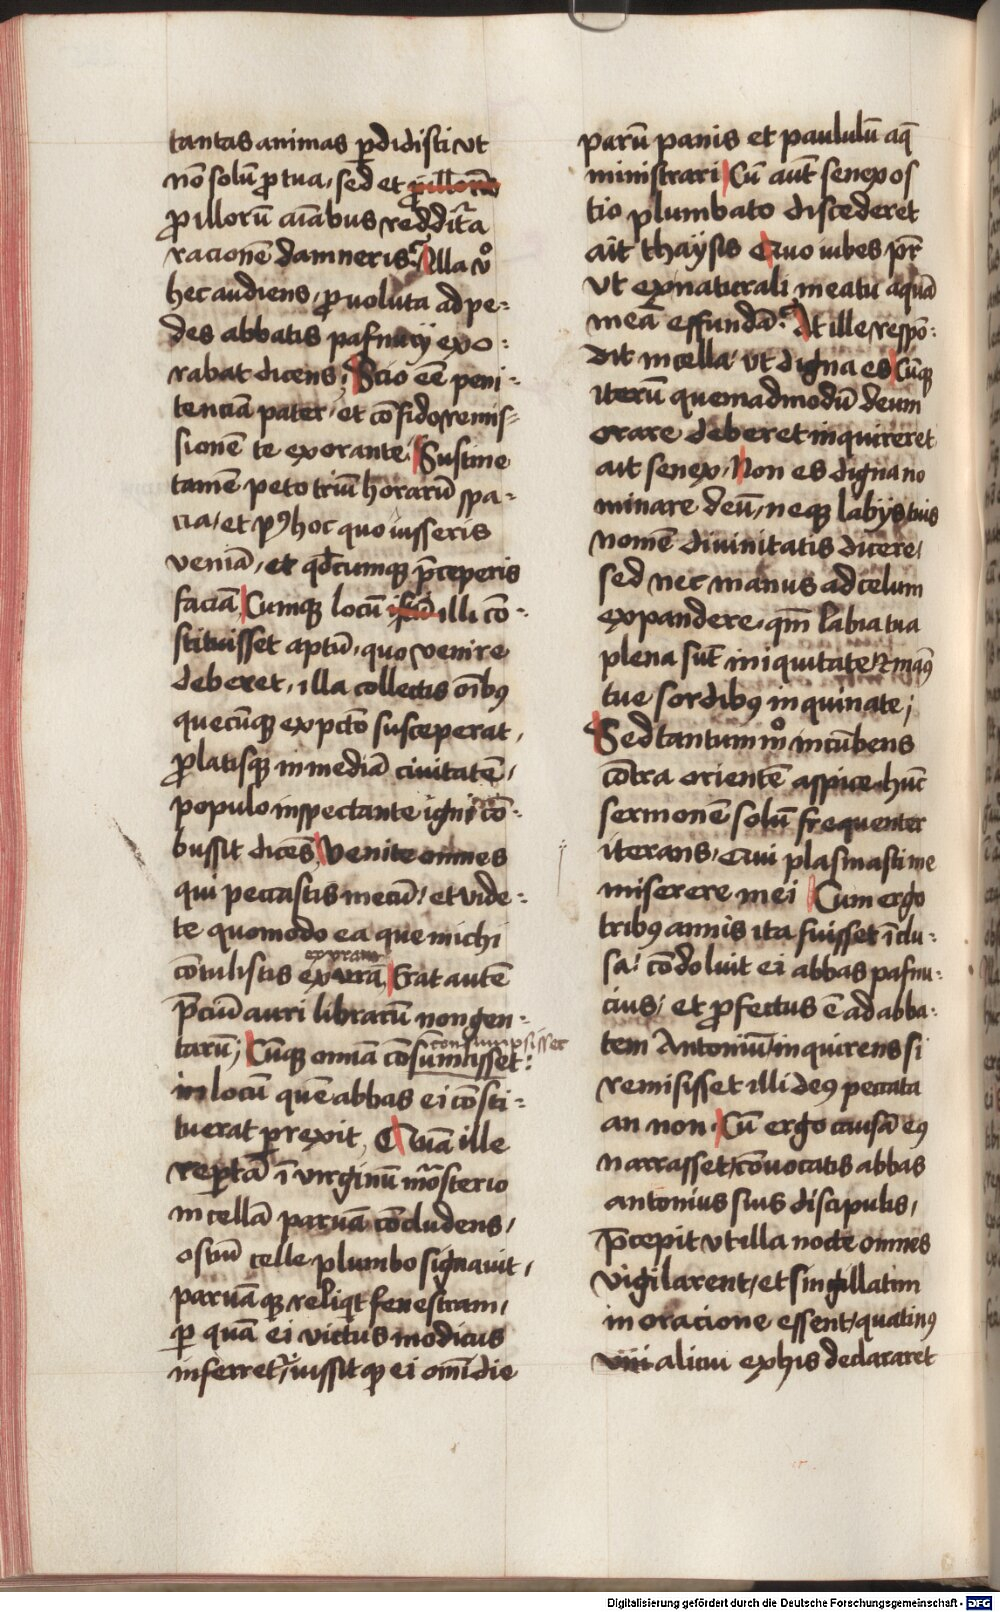 tantas animas ꝑdidisti vt
nō solū ꝓ tua, sed et
ꝓ illorū aīabus reddit̄a
racionē damneris? Illa v̊
hec audiens, ꝓvoluta ad pe-
des abbatis pafnucij exo-
rabat dicens; Scio eē peni-
tenciā pater, et cōfido remis-
sionē te exorante Sustine
tamē peto triū horarū spa-
cia, et pꝰ hoc quo iusseris
veniā, et qd̄cumqꝫ p̄ceperis
faciā Cumqꝫ locū illi cō-
stituisset aptū, quo venire
deberet, illa collectis oībꝰ
quecūqꝫ ex pctō susceperat,
ꝓlatisqꝫ in mediā ciuitatē,
populo inspectante igni cō-
bussit dicēs Venite omnes
qui peccastis mecū, et vide-
te quomodo ea que michi
exuram
cōtulistis exurā Erat autē
p̄ciū auri librarū nongen-
consumpsisset
tarū; Cūqꝫ omnia cōsumisset:
in locū quē abbas ei cōsti-
tuerat perrexit, Quā ille
reꝑtā ī virginū mo̅sterio
in cellā paruā cōcludens,
ostiū celle plumbo signauit,
paruāqꝫ reliqͥt fenestram,
ꝑ quā ei victus modicus
inferretᷣ, iussitqꝫ ei omī die
parū panis et paululū aq̄
ministrari Cū aut̄ senex os
tio plumbato discederet
ait thaysis Quo iubes pr̄
vt ex naturali meatu aquā
meā effundā? At ille respō-
dit in cella vt digna es Cūqꝫ
iterū quemadmodū deum
orare deberet inquireret
ait senex, Non es digna no
minare deū, neqꝫ labijs tuis
nomē diuinitatis dicere,
sed nec manus ad celum
expandere, qm̄ labia tua
plena sūt iniquitate, et manꝰ
tue sordibꝰ inquinate;
Sed tantummͦ incūbens
cōtra orientē aspice hūc
sermonē solū frequenter
iterans, Qui plasmasti me
miserere mei Cum ergo
tribꝰ annis ita fuisset īclu-
sa, cōdoluit ei abbas pafnu-
cius, et ꝓfectus ē ad abba-
tem Antoniū, inquirens si
remisisset illi deꝰ peccata
an non Cū ergo causā eꝰ
narrasset, cōuocatis abbas
antonius suis discipulis,
p̄cepit vt illa nocte omnes
vigilarent, et singillatim
in oracione essent, quatinꝰ
alicui ex his declararet
Digitalisierung gefördert durch die Deutsche Forschungsgemeinschaft - DFG